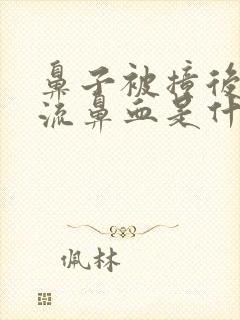 鼻子被撞後
流鼻血是什
佩林